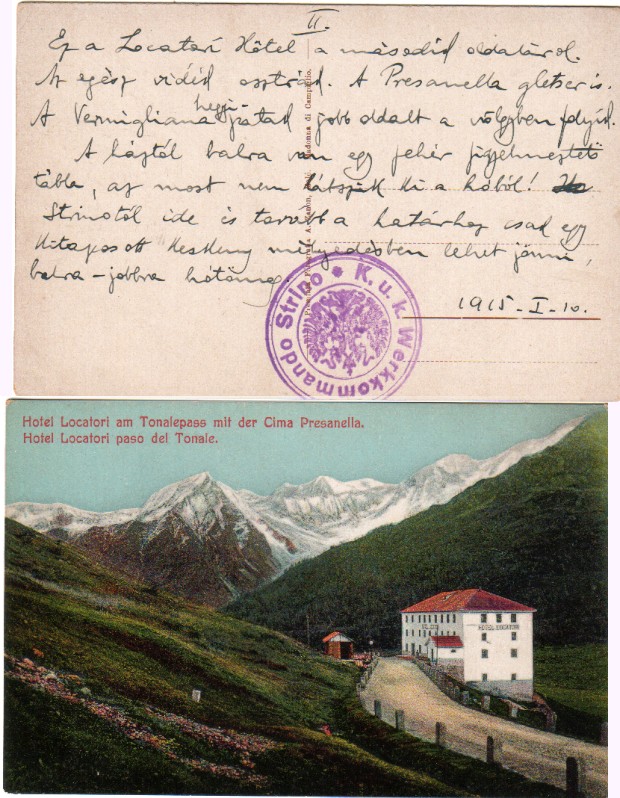 II.
Ez a Locatori Hôtel a második oldaláról.
Az egész vidék osztrák. A Presanella gletseris.
A Vermigliana hegyi patak jobb oldalt a völgyben folyik.
A háztól balra van egy fehér figyelmeztető
tábla, az most nem látszik ki a hóból!
Strinotól ide és tovább a határhoz csak egy
kitaposott keskeny mélyedésben lehet járni,
balra-jobbra hótömeg
1915-I-10.
K. u. k. Werkkommando Strino
Madonna di Campiglio.
Hotel Locatori am Tonalepass mit der Cima Presanella.
Hotel Locatori paso del Tonale.
HOTEL LOCATORI